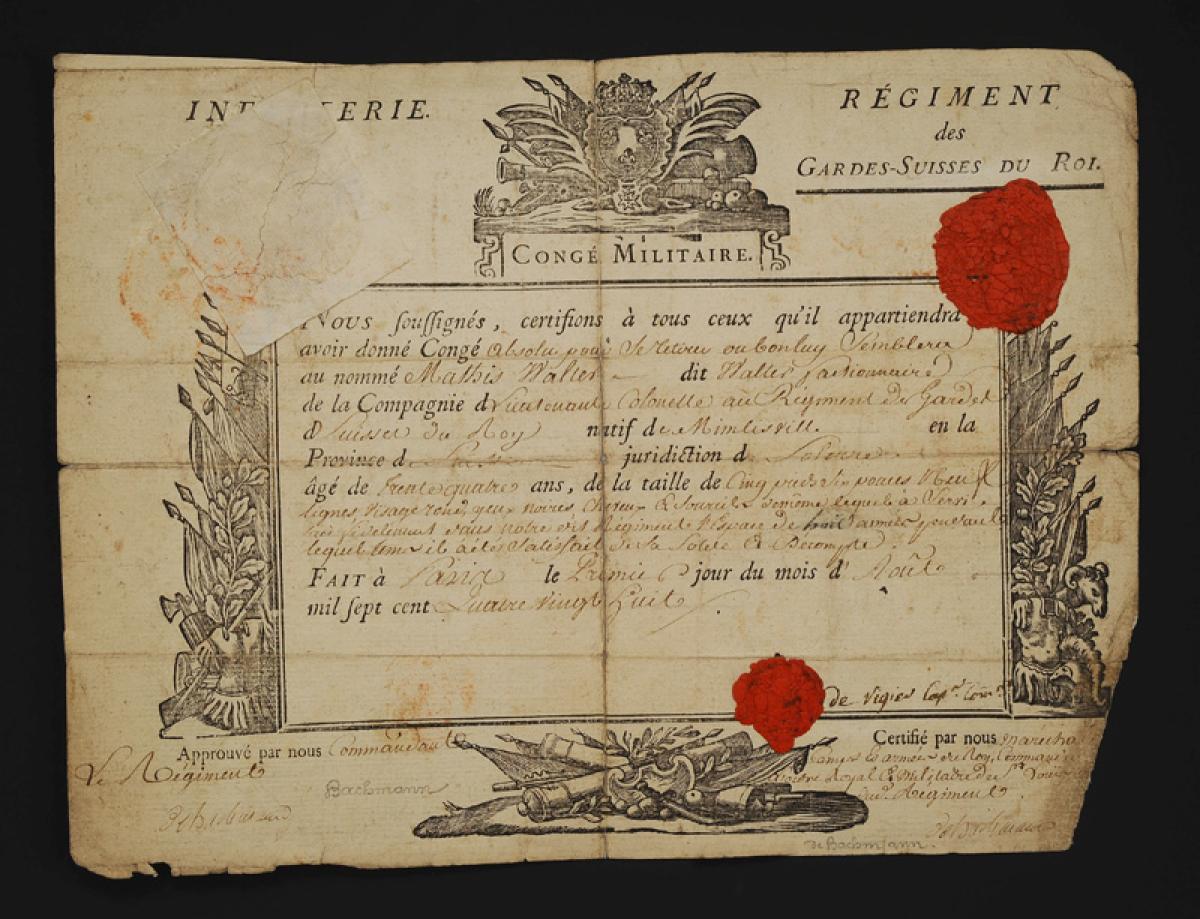 INFANTERIE.
RÉGIMENT
des
GARDES-SUISSES DU ROI.
CONGÉ MILITAIRE.
NOUS souſſignés, certifions à tous ceux qu'il appartiendra
avoir donné Congé absolu pour Se retirer ou bon luy Semblera
au nommé Mathis Walter dit Walter factionnaire
de la Compagnie d Lieutenante Colonelle au Régiment des Gardes
d Suisses du Roy natif de Mimlisvill en la
Province d Suisse juridiction d Soleure
âgé de Trente quatre ans, de la taille de Cinq pieds Six pouces Neuf
lignes visage rond, yeux noires, Cheveux & Sourcils de même lequel à Servi
fidelement dans notre dit Régiment l'Espace de huit années pendant
lequel tems il à étés Satisfait de Sa Solde & Décompte.
FAIT à Paris le Premier jour du mois d' Août
mil ſept cent Quatre Vingt huit
de Vigier Cap.
Approuvé par nous Commandant
Le Régiment
Bachmann
Certifié par nous Marechal
Camps & armées du Roy, Command
l'ordre Royal & Militaire de St Louis
dud. Régiment
de Bachmann.